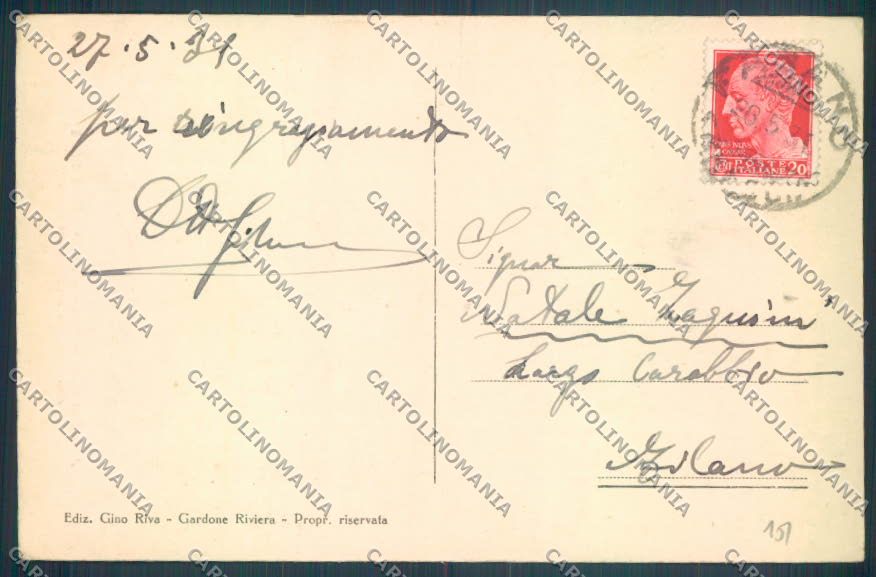 27.5.31
per ringraziamento
Signor
Natale
Largo Carobbio
Milano
IVLIVS CAESAR
POSTE
ITALIANE 20
Ediz. Gino Riva - Gardone Riviera - Propr. riservata
151
CARTOLINOMANIA